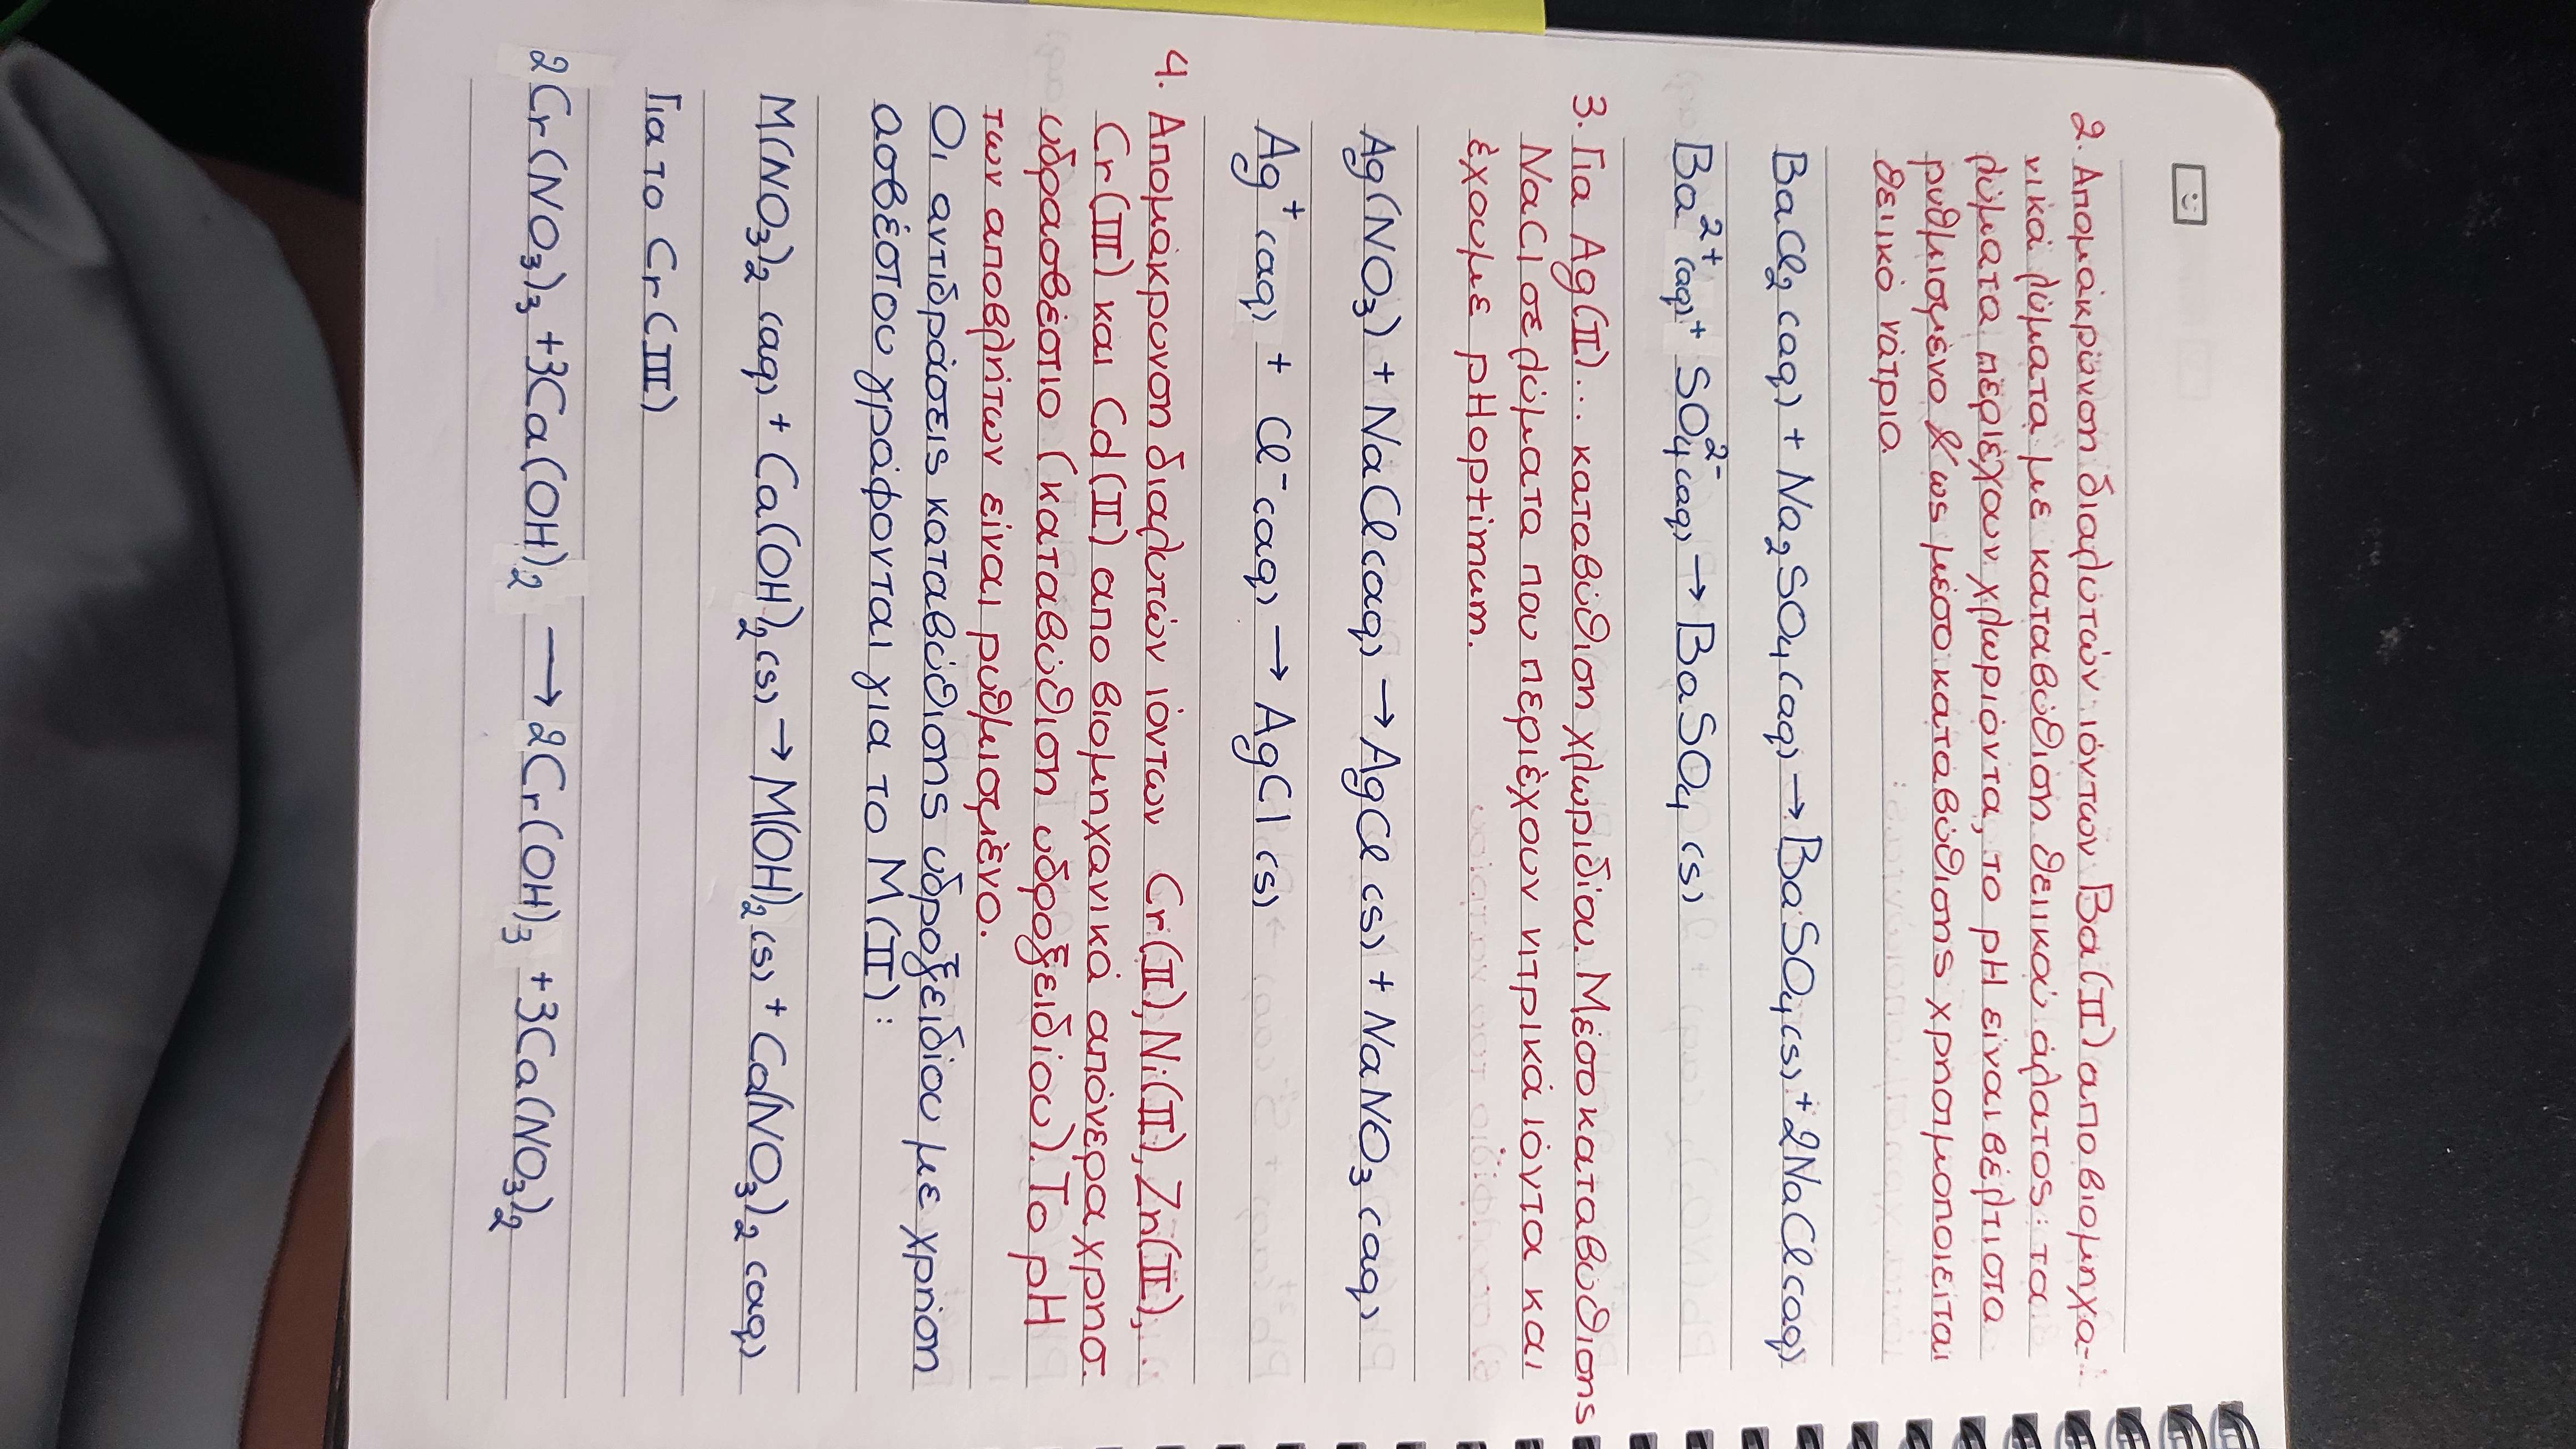 2. Απομάκρυνση διαλυτών ιόντων Ba(II) απο βιομηχα-
νικά λύματα με καταβύθιση θειικού άλατος: τα
λύματα περιέχουν χλωριόντα, το pH είναι βέλτιστα
ρυθμισμένο & ως μέσο καταβύθισης χρησιμοποιείται
θειικό νάτριο.
BaCl₂(aq) + Na₂SO₄(aq) → BaSO₄(s) + 2NaCl(aq)
Ba²⁺(aq) + SO₄²⁻(aq) → BaSO₄(s)
3. Για Ag(I)... καταβύθιση χλωριδίου. Μέσο καταβύθισης
NaCl σε λύματα που περιέχουν νιτρικά ιόντα και
έχουμε pHoptimum.
Ag(NO₃) + NaCl(aq) → AgCl(s) + NaNO₃(aq)
Ag⁺(aq) + Cl⁻(aq) → AgCl(s)
4. Απομάκρυνση διαλυτών ιόντων Cr(II), Ni(II), Zn(II),
Cr(III) και Cd(II) απο βιομηχανικά απόνερα χρησ.
υδρασβέστιο (καταβύθιση υδροξειδίου). Το pH
των αποβλήτων είναι ρυθμισμένο.
Οι αντιδράσεις καταβύθισης υδροξειδίου με χρήση
ασβέστου γράφονται για το M(II):
M(NO₃)₂(aq) + Ca(OH)₂(s) → M(OH)₂(s) + Ca(NO₃)₂(aq)
Για το Cr(III)
2Cr(NO₃)₃ +3Ca(OH)₂ → 2Cr(OH)₃ +3Ca(NO₃)₂